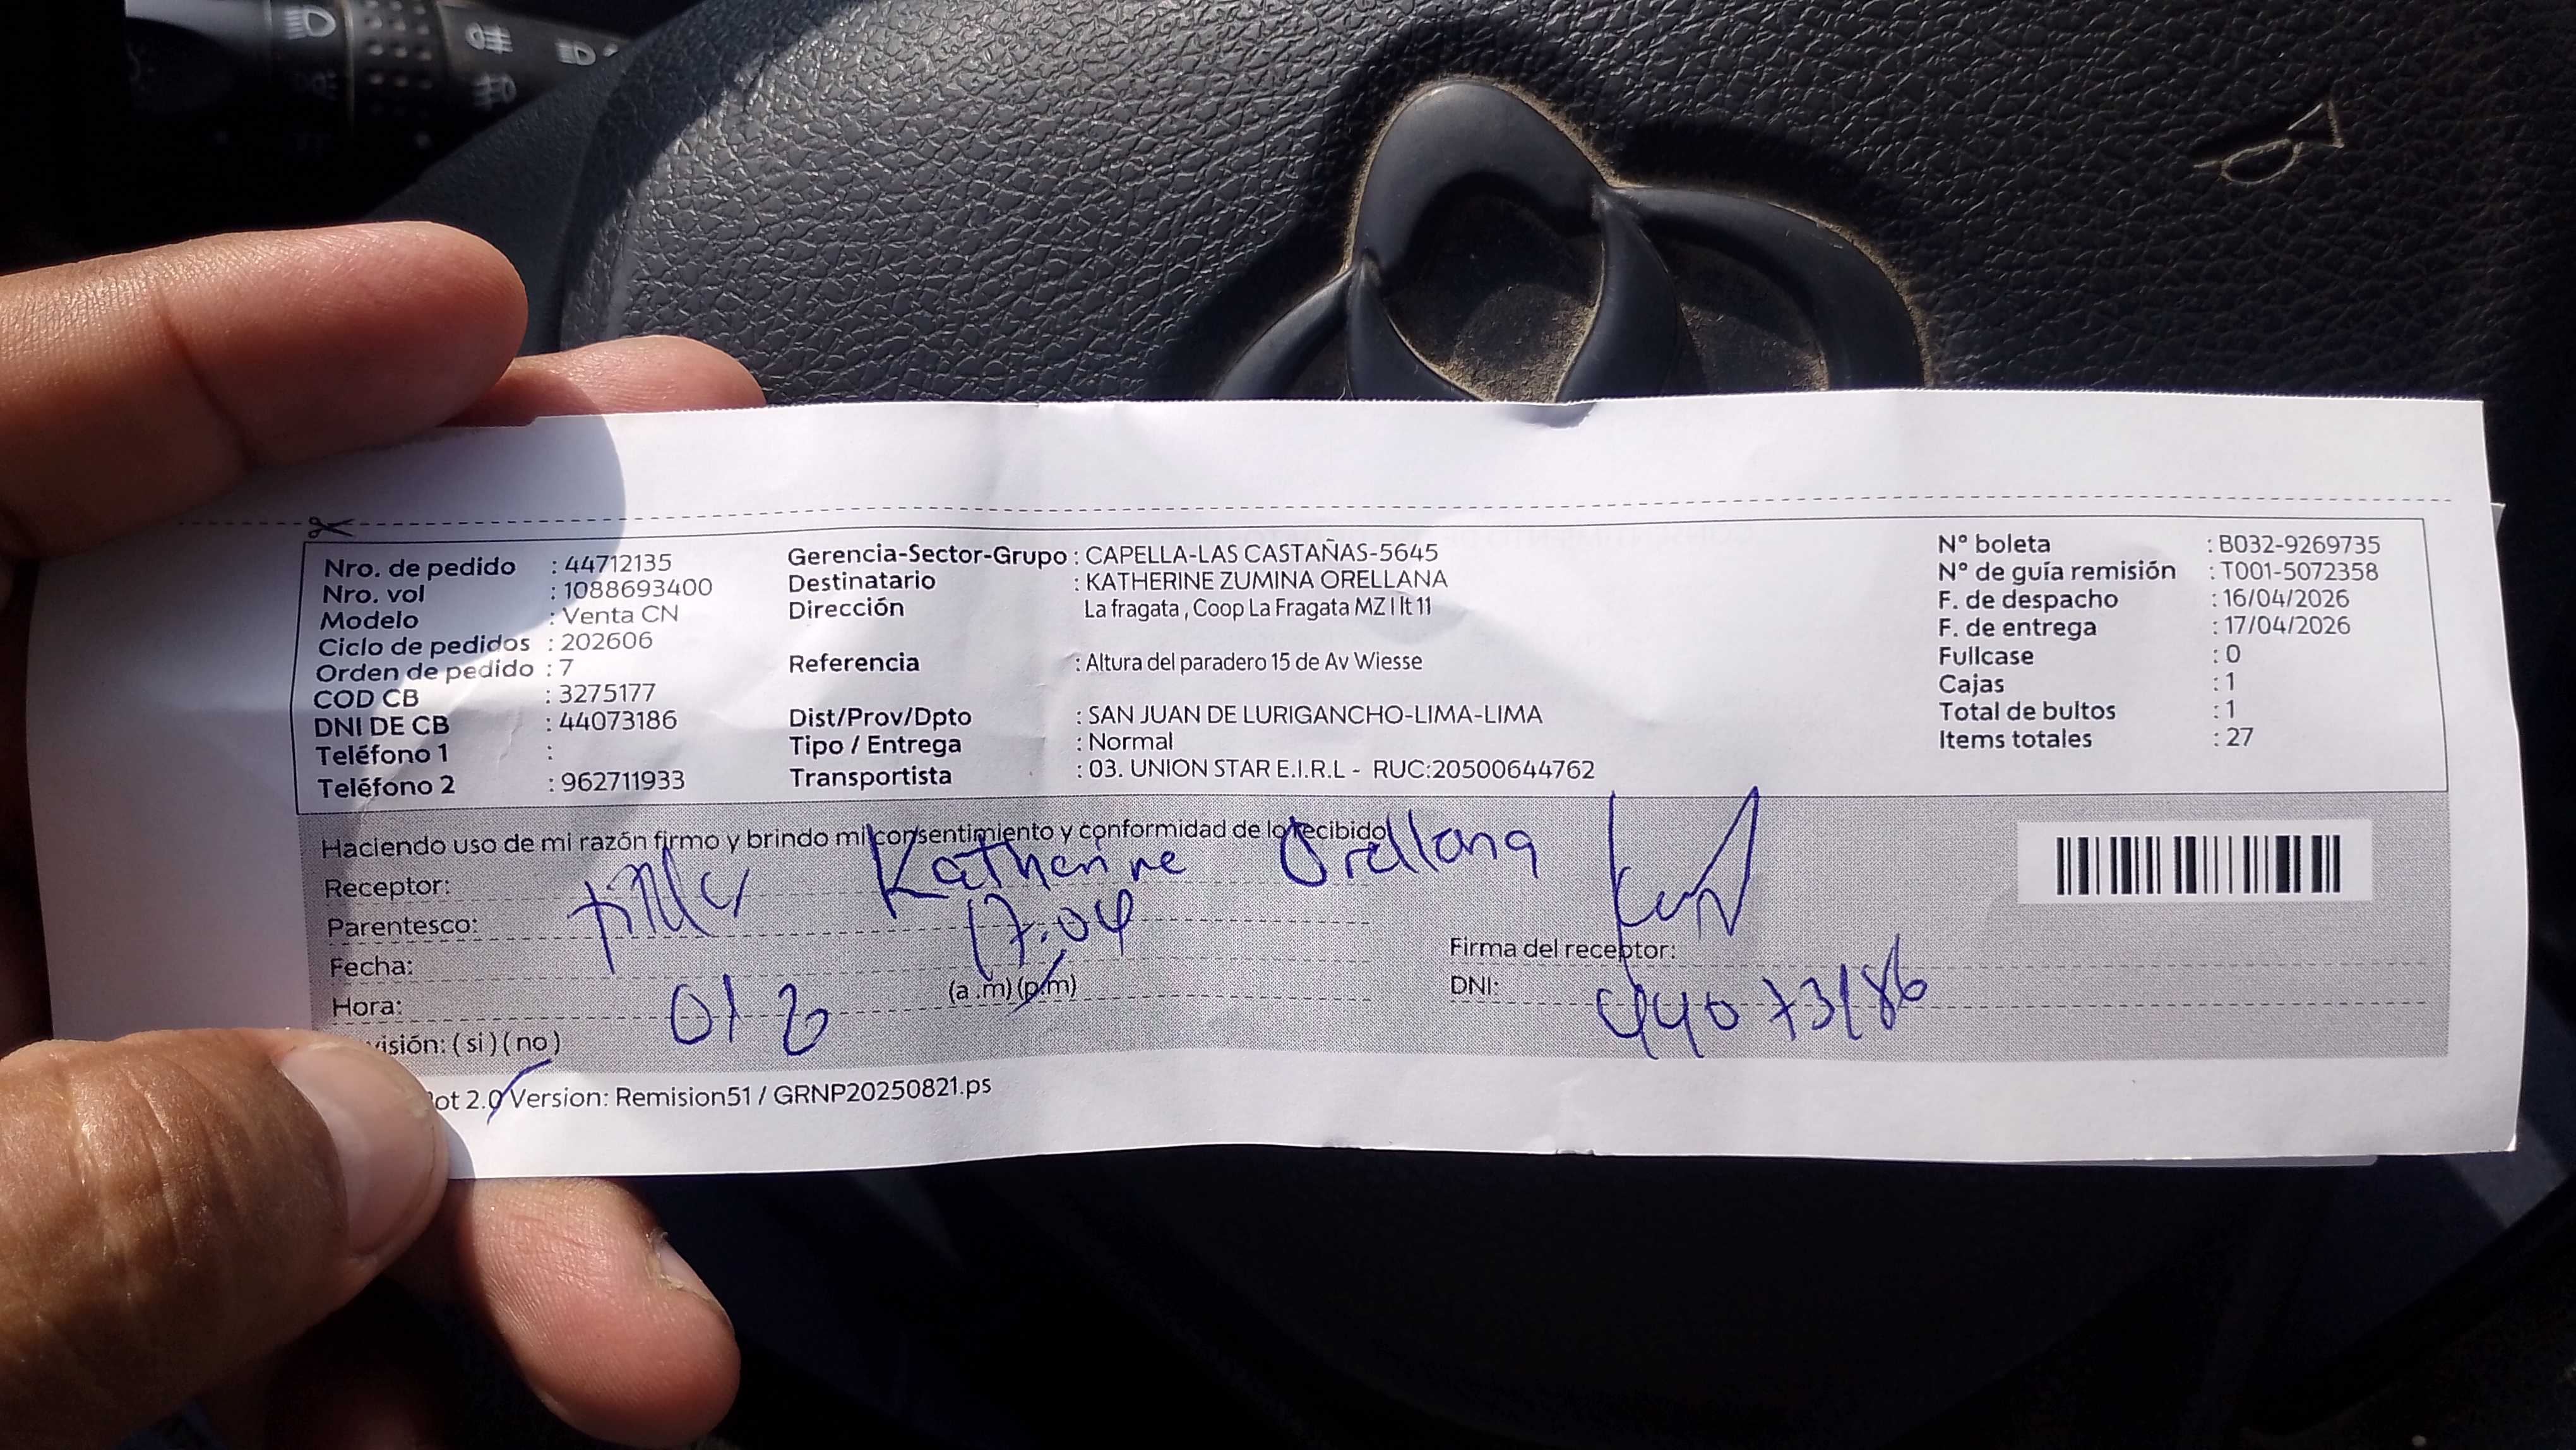 Nro. de pedido : 44712135
Nro. vol : 1088693400
Modelo : Venta CN
Ciclo de pedidos : 202606
Orden de pedido : 7
COD CB : 3275177
DNI DE CB : 44073186
Teléfono 1 :
Teléfono 2 : 962711933
Gerencia-Sector-Grupo : CAPELLA-LAS CASTAÑAS-5645
Destinatario : KATHERINE ZUMINA ORELLANA
Dirección La fragata , Coop La Fragata MZ I lt 11
Referencia : Altura del paradero 15 de Av Wiesse
Dist/Prov/Dpto : SAN JUAN DE LURIGANCHO-LIMA-LIMA
Tipo / Entrega : Normal
Transportista : 03. UNION STAR E.I.R.L - RUC:20500644762
N° boleta : B032-9269735
N° de guía remisión : T001-5072358
F. de despacho : 16/04/2026
F. de entrega : 17/04/2026
Fullcase : 0
Cajas : 1
Total de bultos : 1
Items totales : 27
Haciendo uso de mi razón firmo y brindo mi consentimiento y conformidad de lo recibido
Receptor: Katherine Orellana
Parentesco:
Fecha: 17.04
Hora: (a .m) (p.m)
visión: ( si ) ( no )
Firma del receptor:
DNI: 44073186
ot 2.0 Version: Remision51 / GRNP20250821.ps